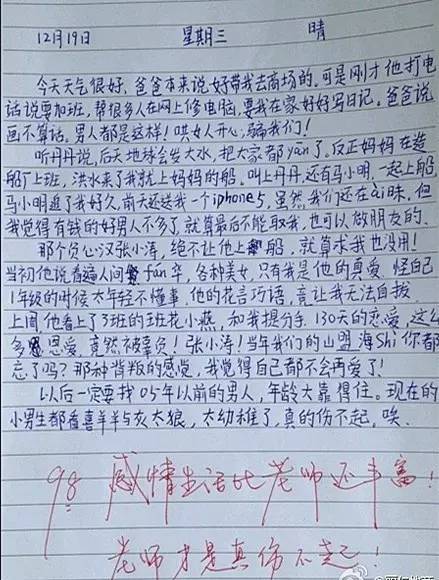 12月19日 星期三 晴
今天天气很好、爸爸本来说好带我去商场的。可是刚才他打电
话说要加班，帮很多人在网上修电脑，要我在家好好写日记。爸爸说
画不算话。男人都是这样！哄女人开心，骗我们！
听丹丹说，后天地球会发大水，把大家都yān了。反正妈妈在造
船厂上班，洪水来了我就上妈妈的船。叫上丹丹还有马小明，一起上船，
马小明追了我好久，前天还送我一个iphone5，虽然，我们还在ài昧，但
我觉得有钱的好男人不多了，就算最后不能取我，也可以做朋友的.
那个负心汉张小涛，绝不让他上船，就算求我也没用！
当初他说看遍人间fán华，各种美女，只有我是他的真爱，怪自
1年级的时候太年轻不懂事，他的花言巧语，竟让我无法自拔.
上周他看上了3班的班花小燕，和我提分手. 130天的恋爱，这么
多恩爱，竟然被辜负！张小涛！当年我们的山盟海Shì你都
忘了吗？那种背叛的感觉，我觉得自己都不会再爱了！
以后一定要找05年以前的男人，年龄大靠得住。现在的
小男生都看喜羊羊与灰太狼，太幼稚了，真的伤不起，唉.
98 感情生活比老师还丰富！
老师才是真伤不起！